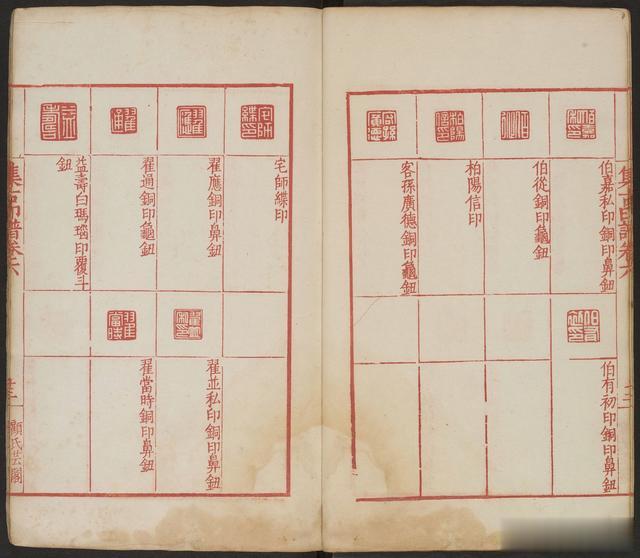 集古印譜卷六
伯嘉私印銅印鼻鈕
伯從銅印龜鈕
柏陽信印
客孫廣德銅印龜鈕
伯有初印銅印鼻鈕
宅師緤印
翟應銅印鼻鈕
翟過銅印龜鈕
益壽白瑪瑙印覆斗
鈕
翟並私印銅印鼻鈕
翟當時銅印鼻鈕
集古印譜卷六
顧氏芸閣